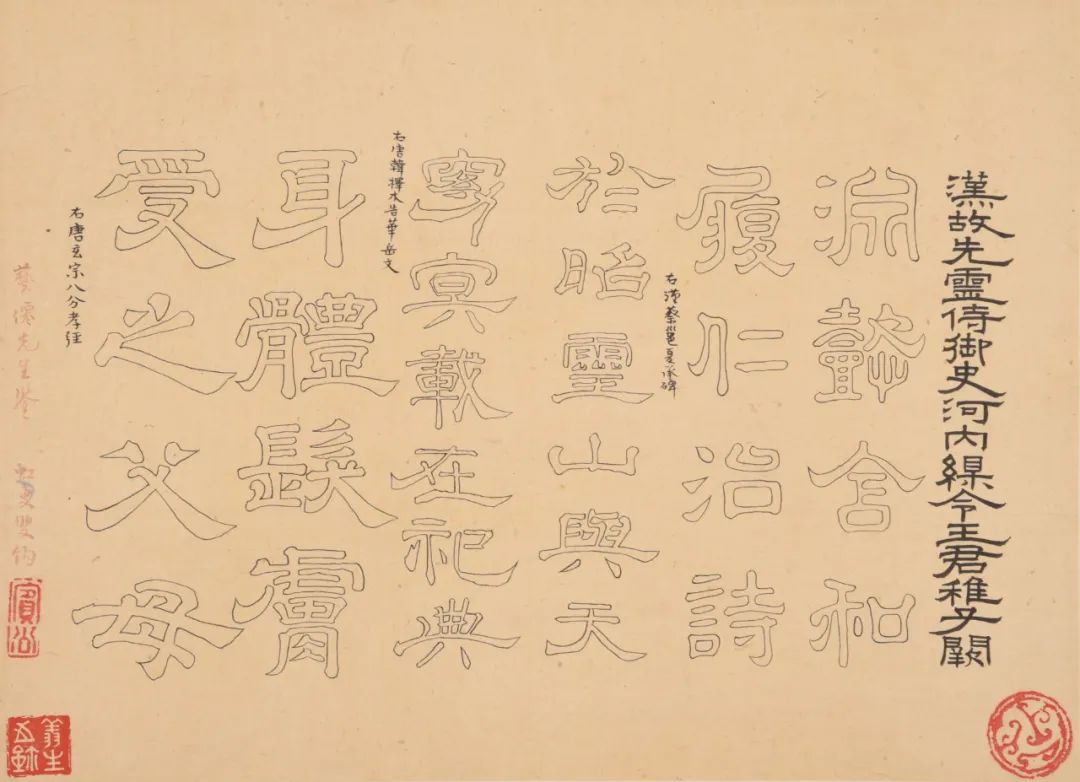 漢故先靈侍御史河內令王君稚子闕
淵懿含和
履仁治詩
右漢蔡邕夏承碑
於昭靈山與天
冥載在祀典
右唐韓擇木告華岳文
身體髮膚
受之父母
右唐玄宗八分孝經
先生鑒 虹叟雙鉤
賓公